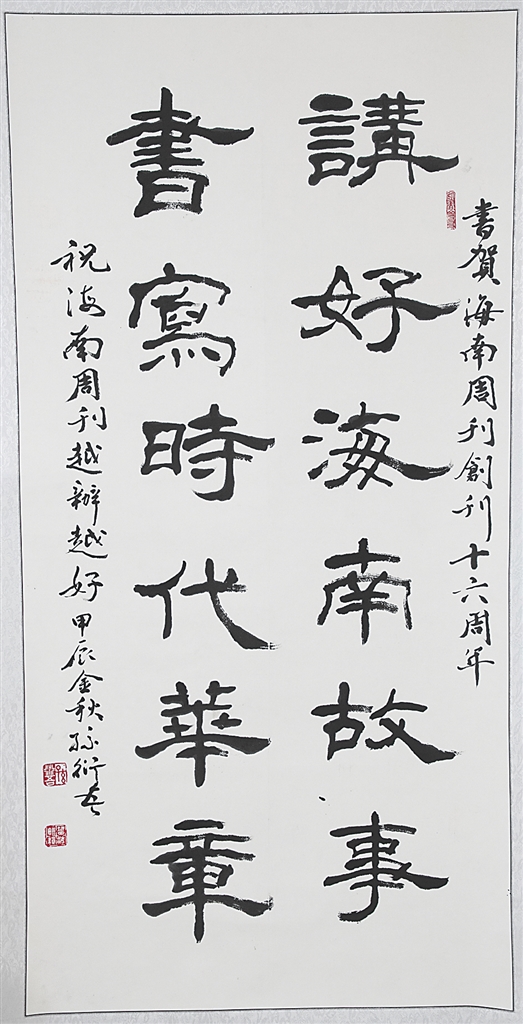 書賀海南周刊創刊十六周年
講好海南故事
書寫時代華章
祝海南周刊越辦越好 甲辰金秋孫衍